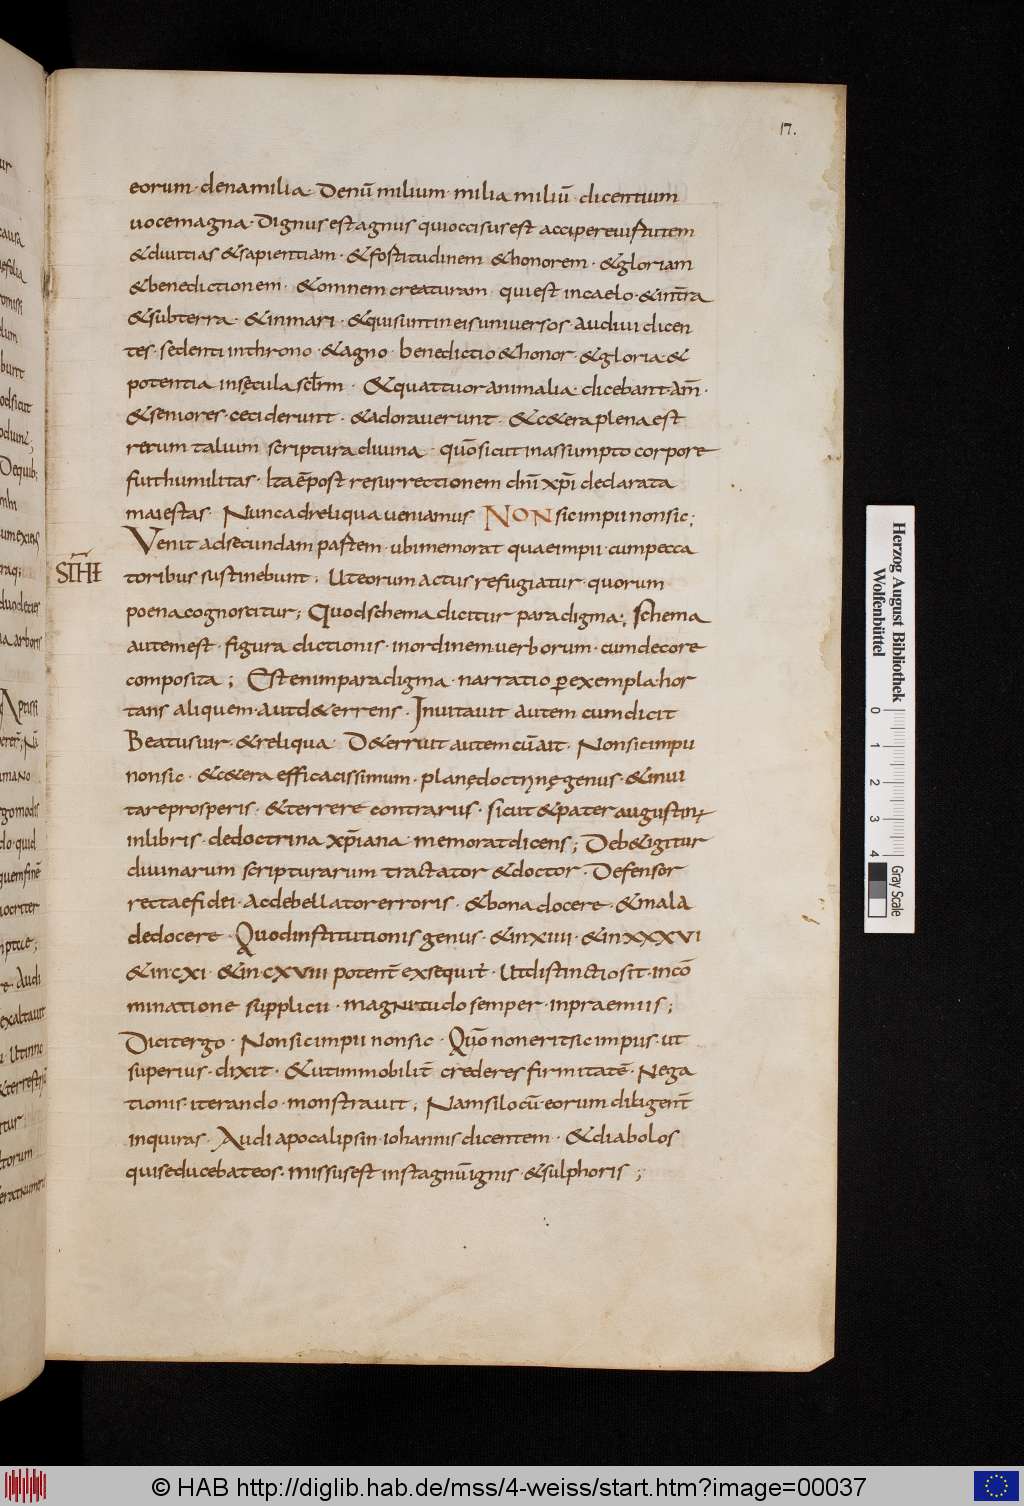 17.
eorum · denamilia · Denū milium · milia miliū · dicentium
uocemagna · Dignus est agnus qui occisus est accipere uirtutem
& diuitias & sapientiam · & fortitudinem & honorem · & gloriam
& benedictionem · & omnem creaturam · qui est in caelo · & in tra
& sub terra · & in mari · & qui sunt in eis uniuersos · audiui dicen
tes · sedenti in throno · & agno · benedictio & honor · & gloria · &
potentia in sęcula sclrm · & quattuor animalia · dicebant am̄ ·
& seniores · ceciderunt · & adorauerunt · & c&era plena est
rerum talium scriptura diuina · quō sicut in assumpto corpore
fuit humilitas · Ita ē post resurrectionem dnī xpī declarata
maiestas · Nunc ad reliqua ueniamus NON sic impii non sic ;
Venit ad secundam partem · ubi memorat quae impii · cum pecca
toribus sustinebunt · Ut eorum actus refugiatur · quorum
poena cognoscitur ; Quod schema dicitur paradigma ; Schema
autem est · figura dictionis · in ordinem uerborum · cum decore
composita ; Est enim paradigma · narratio ꝑ exempla · hor
tans aliquem · aut d&errens · Inuitauit autem cum dicit
Beatus uir · & reliqua · D&erruit autem cū ait · Non sic impii
non sic · & c&era efficacissimum · planę doctrinę genus · & inui
tare prosperis · & terrere contrariis · sicut & pater augustinus
in libris · de doctrina xp̄iana · memorat dicens ; Deb& igitur
diuinarum scripturarum tractator & doctor · Defensor
rectae fidei · ac debellator erroris · & bona docere · & mala
dedocere · Quod institutionis genus · & in xiiii · & in xxxvi
& in cxi · & in cxviii potent̄ exsequit̄ · Ut distinctio sit · in cō
minatione supplicii · magnitudo semper · in praemiis ;
Dicit ergo · Non sic impii non sic · Quō non erit sic impius · ut
superius · dixit · & ut immobilit̄ crederes firmitatē · Nega
tionis iterando · monstrauit ; Nam si locū eorum diligent̄
inquiras · Audi apocalipsin iohannis dicentem · & diabolos
qui seducebat eos · missus est in stagnū ignis · & sulphoris ;
Herzog August Bibliothek
Wolfenbüttel
0 1 2 3 4
Gray Scale
© HAB http://diglib.hab.de/mss/4-weiss/start.htm?image=00037